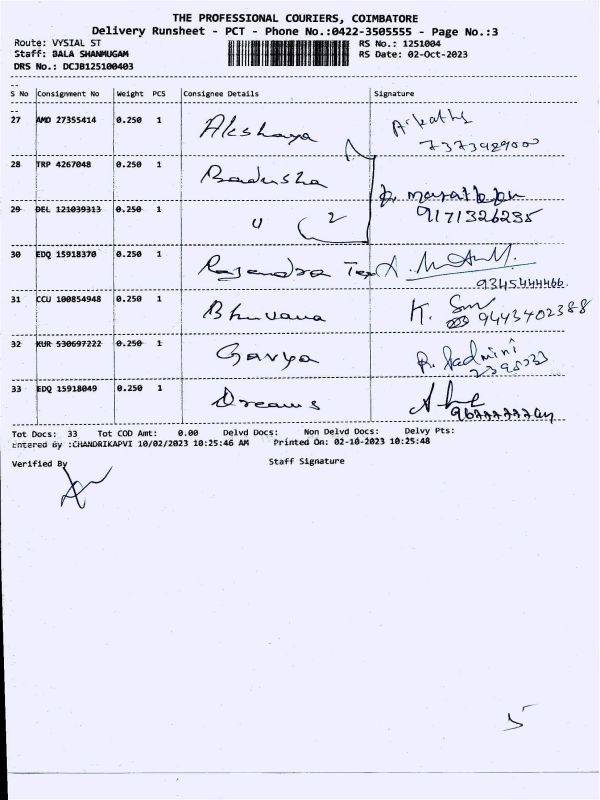 THE PROFESSIONAL COURIERS, COIMBATORE
Delivery Runsheet - PCT - Phone No.:0422-3505555 - Page No.:3
Route: VYSIAL ST RS No.: 1251004
Staff: BALA SHANMUGAM RS Date: 02-Oct-2023
DRS No.: DCJB125100403
S No Consignment No Weight PCS Consignee Details Signature
27 AMD 27355414 0.250 1 Akshaya
28 TRP 4267048 0.250 1 Badusha
29 DEL 121039313 0.250 1 2
9171326235
30 EDQ 15918370 0.250 1 Rajendra
9345444466
31 CCU 100854948 0.250 1 Bhuvana K.
9443402388
32 KUR 530697222 0.250 1 Gavya
33 EDQ 15918049 0.250 1 Dreams
Tot Docs: 33 Tot COD Amt: 0.00 Delvd Docs: Non Delvd Docs: Delvy Pts:
Entered By :CHANDRIKAPVI 10/02/2023 10:25:46 AM Printed On: 02-10-2023 10:25:48
Verified By Staff Signature